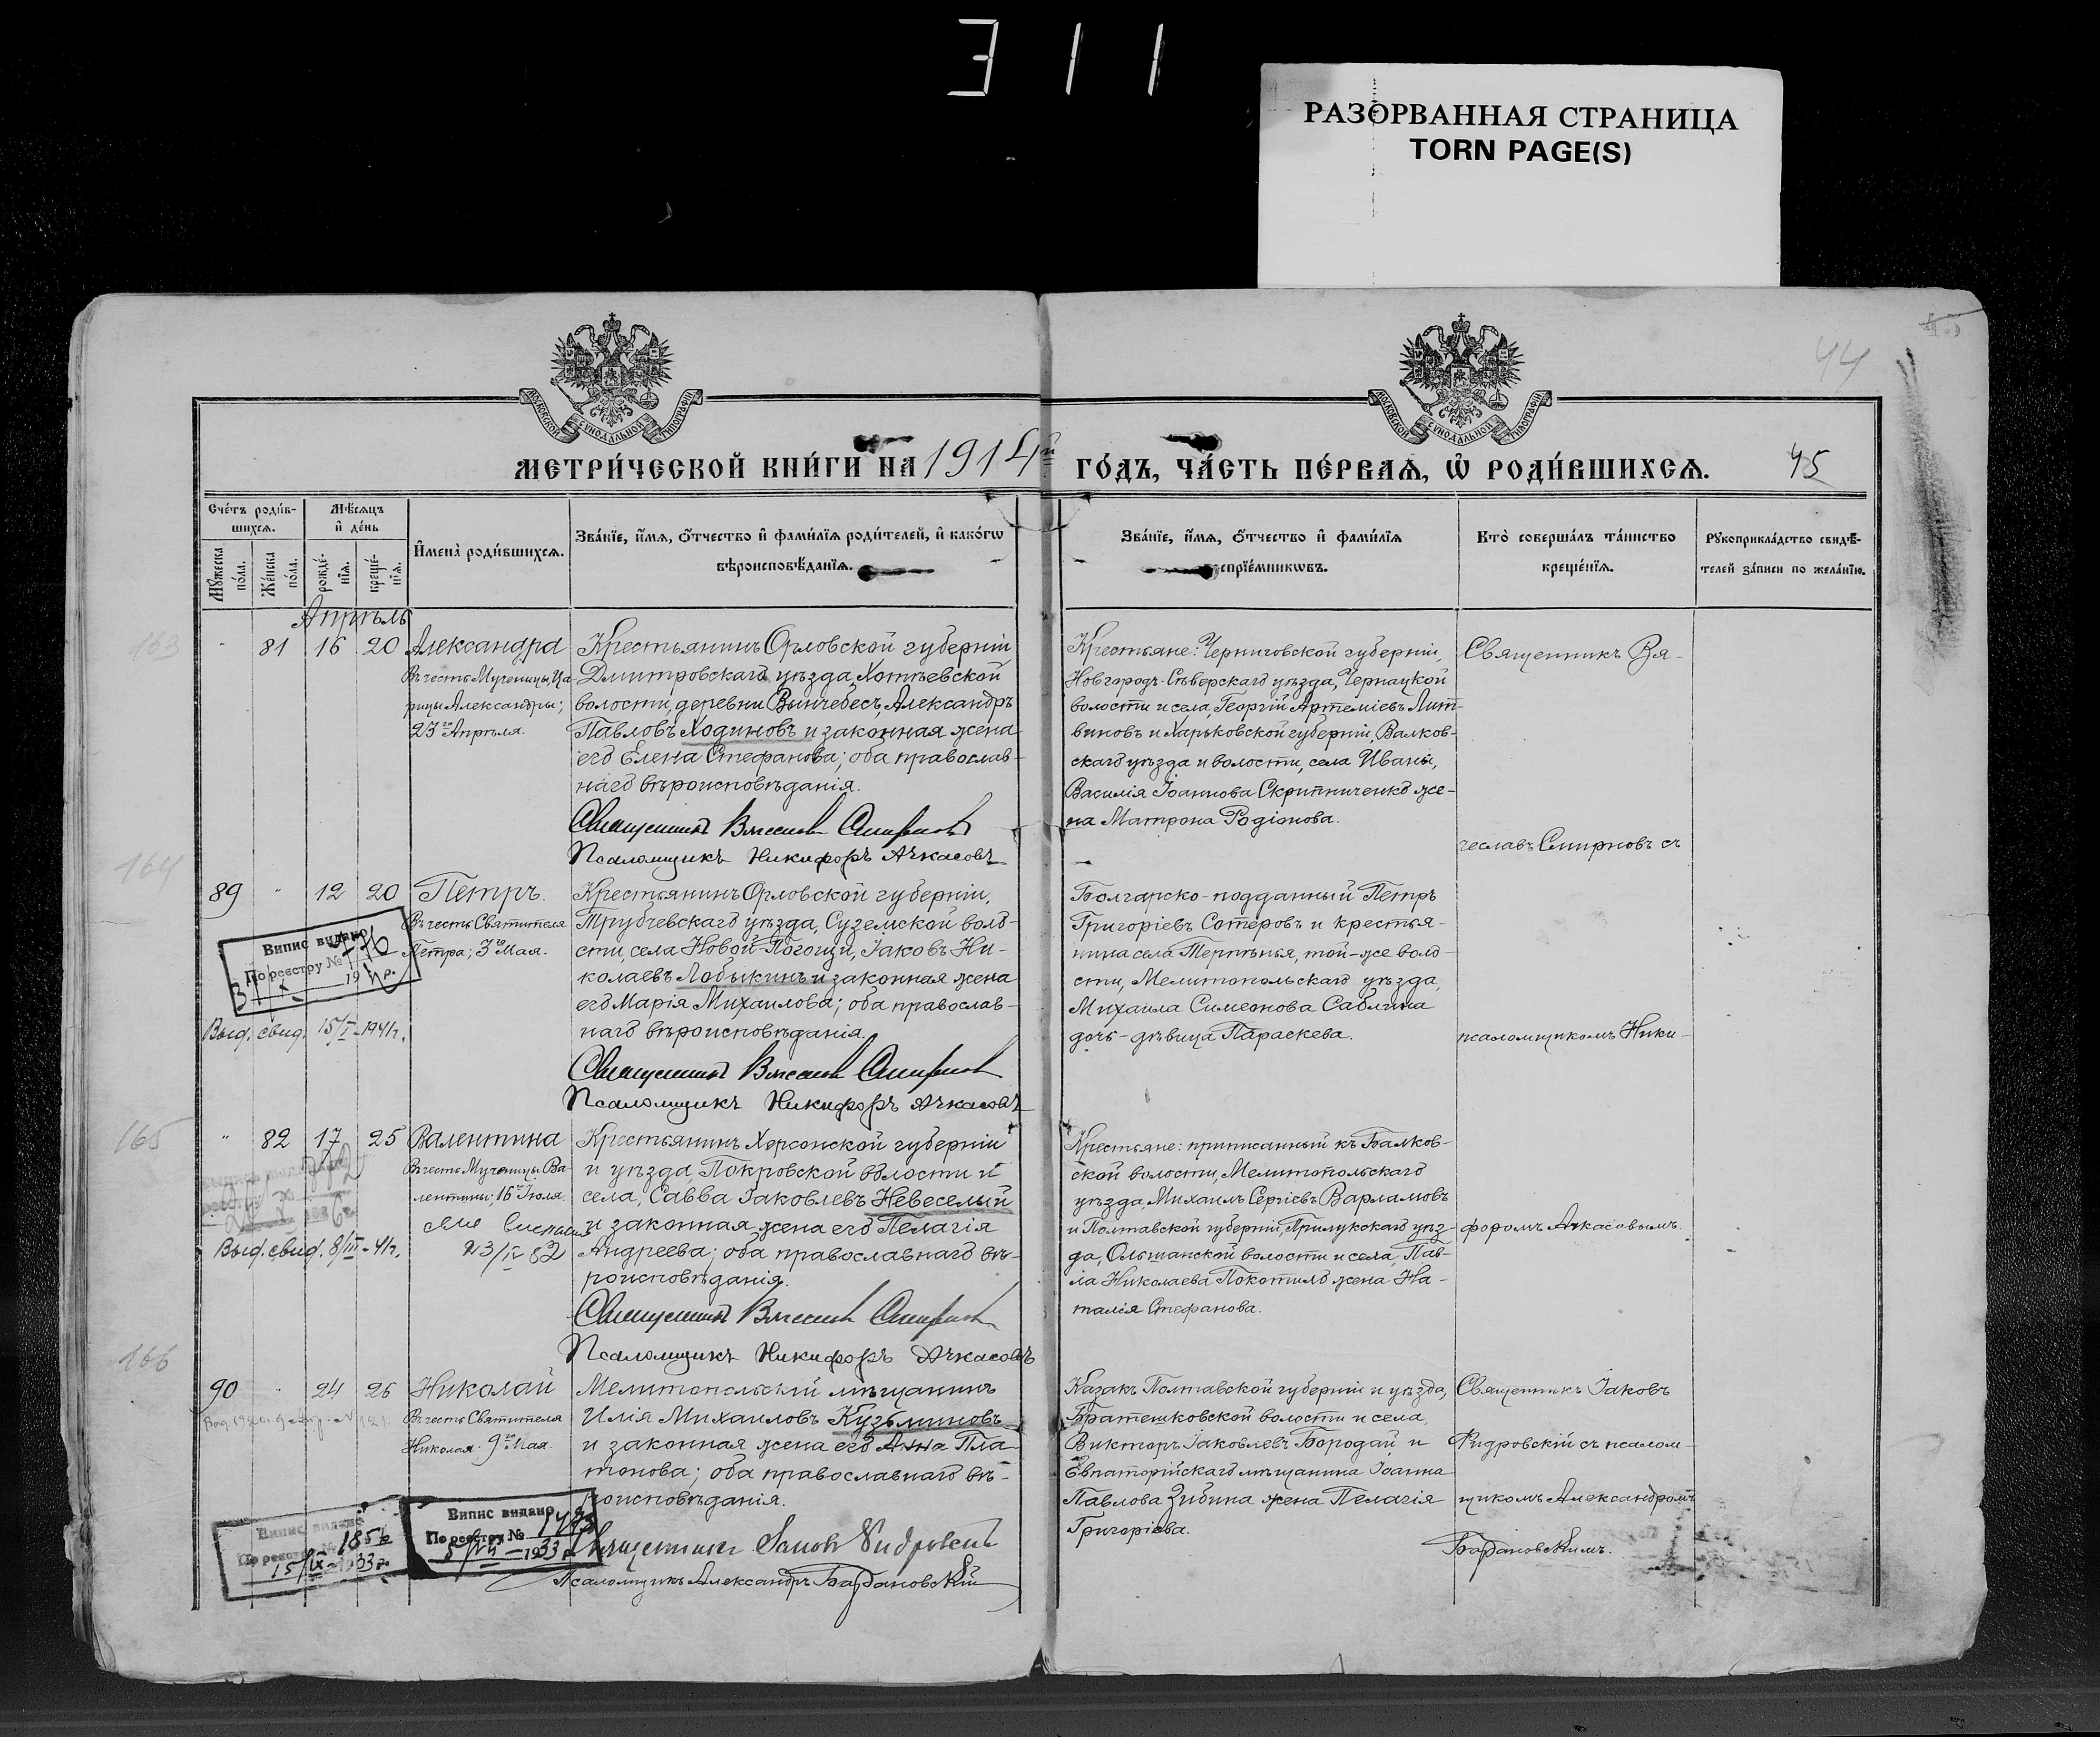 311
РАЗОРВАННАЯ СТРАНИЦА
TORN PAGE(S)
44
МОСКОВСКОЙ СѴНОДАЛЬНОЙ ТИПОГРАФІИ
МОСКОВСКОЙ СѴНОДАЛЬНОЙ ТИПОГРАФІИ
МЕТРИ́ЧЕСКОЙ КНИ́ГИ НА 1914й ГО́ДЪ, ЧА́СТЬ ПЕ́РВАѦ, Ѡ҆ РОДИ́ВШИХСѦ. 45
Сче́тъ роди́в-
шихсѧ.
Мꙋ́жеска по́ла.
Же́нска по́ла.
Мѣ́сѧцъ и҆ де́нь
рожде́-нїѧ.
креще́-нїѧ.
И҆мена̀ роди́вшихсѧ.
Зва́нїе, и҆́мѧ, ѻ҆́тчество и҆ фами́лїѧ роди́телей, и҆ како́гѡ
вѣроисповѣ́данїѧ.
Зва́нїе, и҆́мѧ, ѻ҆́тчество и҆ фами́лїѧ
спрїе́мникѡвъ.
Кто̀ соверша́лъ та́инство
креще́нїѧ.
Рꙋкоприкла́дство свидѣ́-
телей за́писи по жела́нїю.
Апрѣль
163
81 16 20 Александра
Въ честь Мученицы Ца-
рицы Александры;
23го Апрѣля.
Крестьянинъ Орловской губерніи
Дмитровскаго уѣзда, Хотѣевской
волости, деревни Вынчебесъ, Александръ
Павловъ Ходиновъ и законная жена
его Елена Стефанова; оба православ-
наго вѣроисповѣданія.
Священникъ Вячеславъ Смирновъ
Псаломщикъ Никифоръ Ачкасовъ
Крестьяне: Черниговской губерніи,
Новгородъ-Сѣверскаго уѣзда, Чернацкой
волости и села, Георгій Артеміевъ Лит-
виновъ и Харьковской губерніи, Валков-
скаго уѣзда и волости, села Иваны,
Василія Іоаннова Скрипниченко же-
на Матрона Родіонова.
Священникъ Вя-
чеславъ Смирновъ съ
164
89 12 20 Петръ.
Въ честь Святителя
Петра; 3го Мая.
Випис видано
По реєстру № 776
19
Выд. свид. 15/I-1941г.
Крестьянинъ Орловской губерніи,
Трубчевскаго уѣзда, Суземской воло-
сти, села Новой-Погощи, Іаковъ Ни-
колаевъ Лобыкинъ и законная жена
его Марія Михаилова; оба православ-
наго вѣроисповѣданія.
Священникъ Вячеславъ Смирновъ
Псаломщикъ Никифоръ Ачкасовъ
Болгарско-подданный Петръ
Григоріевъ Сотеровъ и крестья-
нина села Терпѣнья, той-же воло-
сти, Мелитопольскаго уѣзда,
Михаила Симеонова Саблина
дочь-дѣвица Параскева.
псаломщикомъ Ники-
165
82 17 25 Валентина
Въ честь Мученицы Ва-
лентины; 16го Іюля.
23/IV 82
Выд. свид. 8/III-41г.
Крестьянинъ Херсонской губерніи
и уѣзда, Покровской волости и
села, Савва Іаковлевъ Невеселый
и законная жена его Пелагія
Андреева; оба православнаго вѣ-
роисповѣданія.
Священникъ Вячеславъ Смирновъ
Псаломщикъ Никифоръ Ачкасовъ
Крестьяне: приписанный къ Балков-
ской волости, Мелитопольскаго
уѣзда, Михаилъ Сергіевъ Варламовъ
и Полтавской губерніи, Прилукскаго уѣз-
да, Ольшанской волости и села, Пав-
ла Николаева Покотило жена На-
талія Стефанова.
форомъ Ачкасовымъ.
166
90 24 26 Николай
Въ честь Святителя
Николая. 9го Мая.
Випис видано
По реєстру № 1856
15/IX-1933р.
Випис видано
По реєстру №
1933р.
Мелитопольскій мѣщанинъ
Илія Михаиловъ Кузьминовъ
и законная жена его Анна Пла-
тонова; оба православнаго вѣ-
роисповѣданія.
Священникъ Іаковъ Фидровскій
Псаломщикъ Александръ Бардановскій
Казакъ Полтавской губерніи и уѣзда,
Братешковской волости и села,
Викторъ Іаковлевъ Бородай и
Евпаторійскаго мѣщанина Іоанна
Павлова Зибина жена Пелагія
Григоріева.
Священникъ Іаковъ
Фидровскій съ псалом-
щикомъ Александромъ
Бардановскимъ.